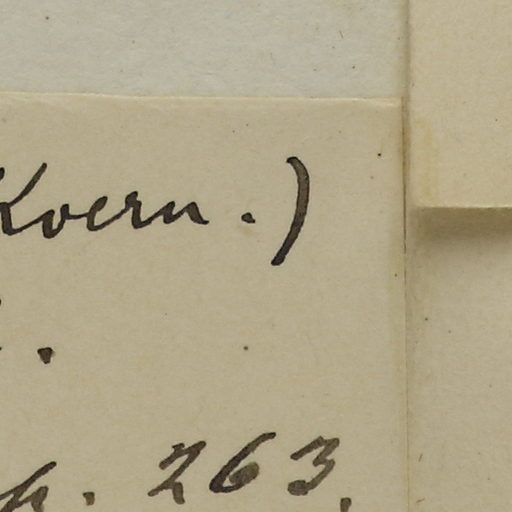 Koern.)
.
p. 263.